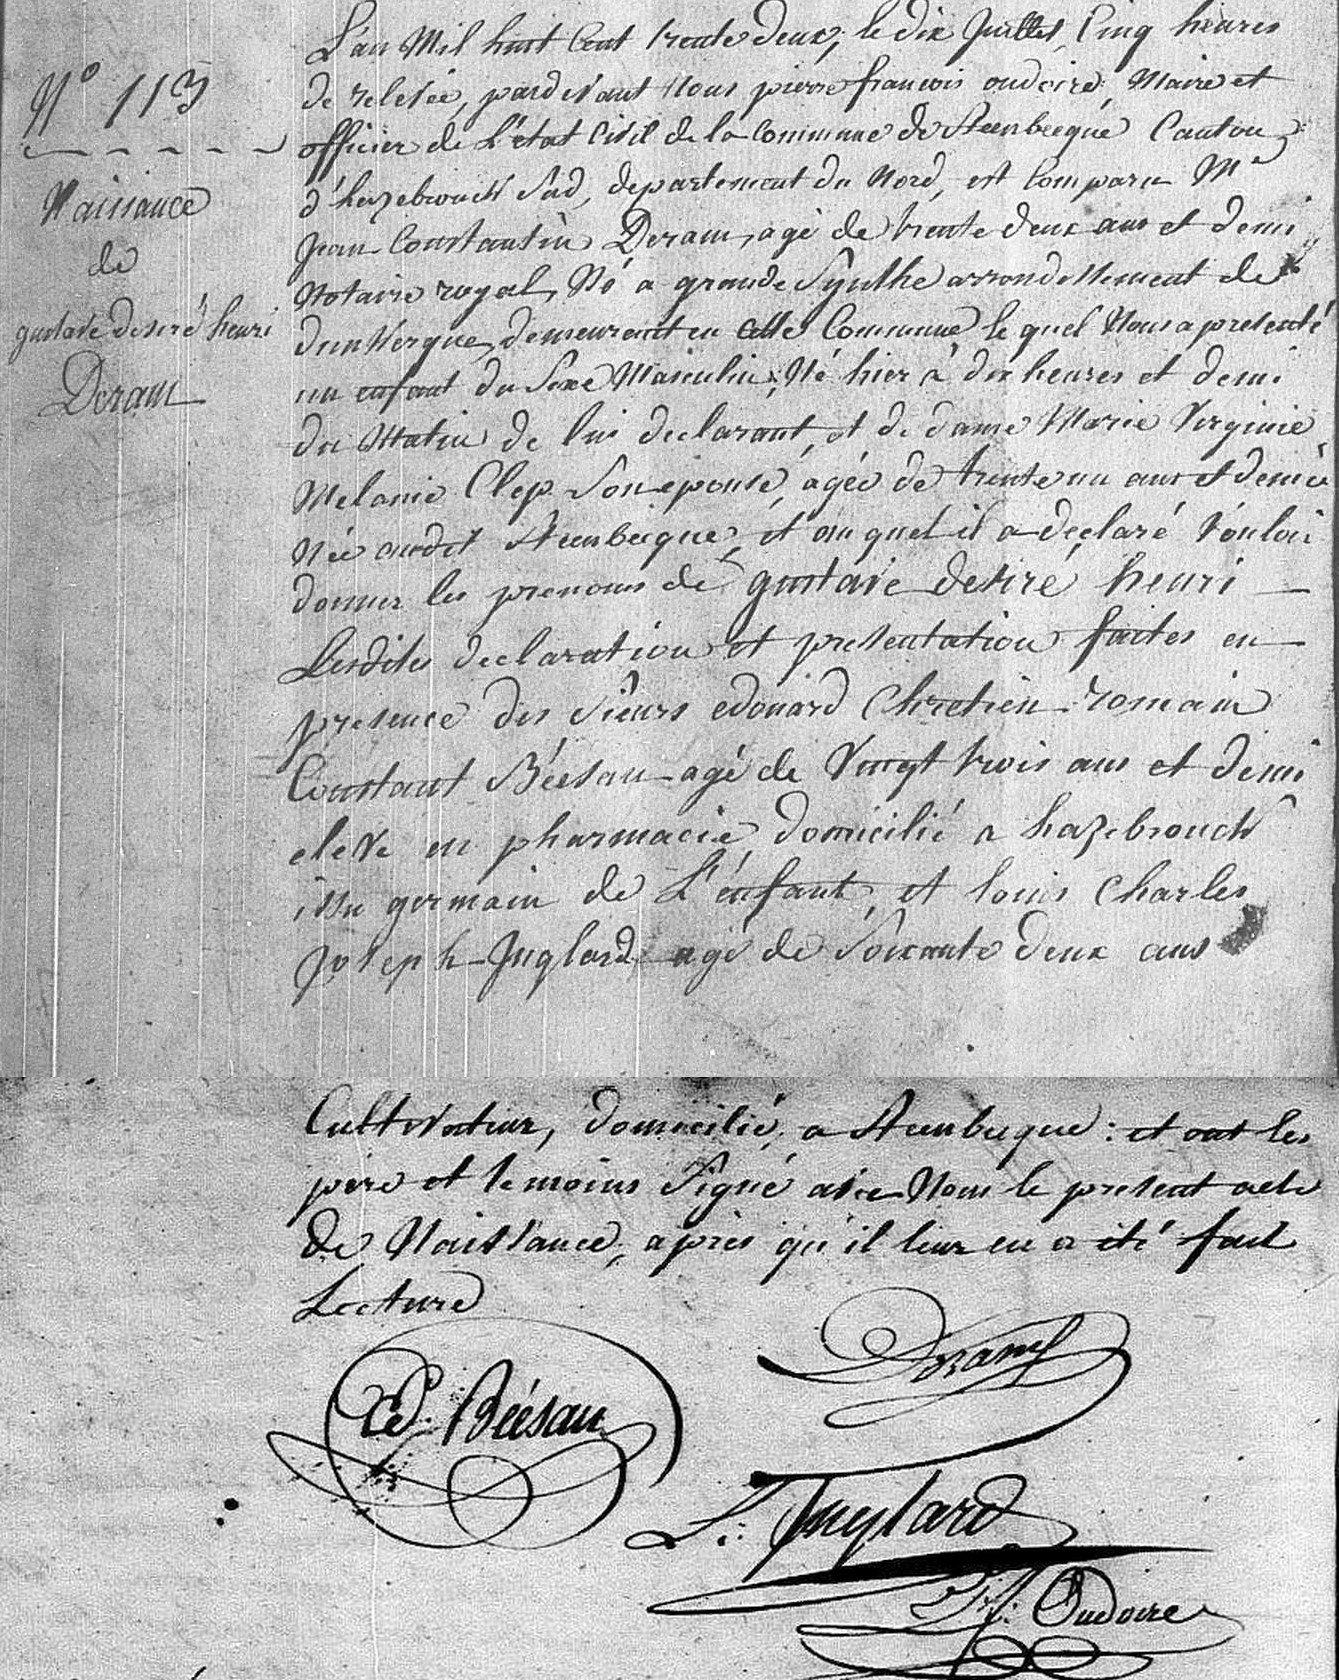 N° 113
Naissance
de
gustave desiré henri
Deram
L'an Mil huit Cent trente deux, le dix Juillet, Cinq heures
de relevée, pardevant Nous pierre francois oudoire, Maire et
officier de L'état Civil de la Commune de Steenbecque Canton
d'hazebrouck Sud, departement du Nord, est Comparu Me
Jean Constantin Deram, agé de trente deux ans et demi
Notaire royal, Né a grande Synthe arrondissement de
dunkerque, demeurant en cette Commune, le quel Nous a presenté
un enfant du Sexe Masculin, Né hier à dix heures et demi
du Matin de lui declarant, et de dame Marie Virginie
Melanie Clep Son epouse, agée de trente un ans et demie
Née audit Steenbecque, et au quel il a declaré Vouloir
donner les prenoms de gustave desiré henri
Lesdites declaration et presentation faites en
presence des Sieurs edouard Chretien romain
Constant Béesau agé de Vingt trois ans et demi
eleve en pharmacie, domicilié a hazebrouck
issu germain de L'enfant, et louis Charles
Joseph Juglard agé de Soixante deux ans
Cultivateur, domicilié a Steenbecque : et ont les
père et temoins Signé avec Nous le present acte
de Naissance, après qu'il leur en a été fait
Lecture
Deram
Ed. Béesau
L. Juglard
Oudoire